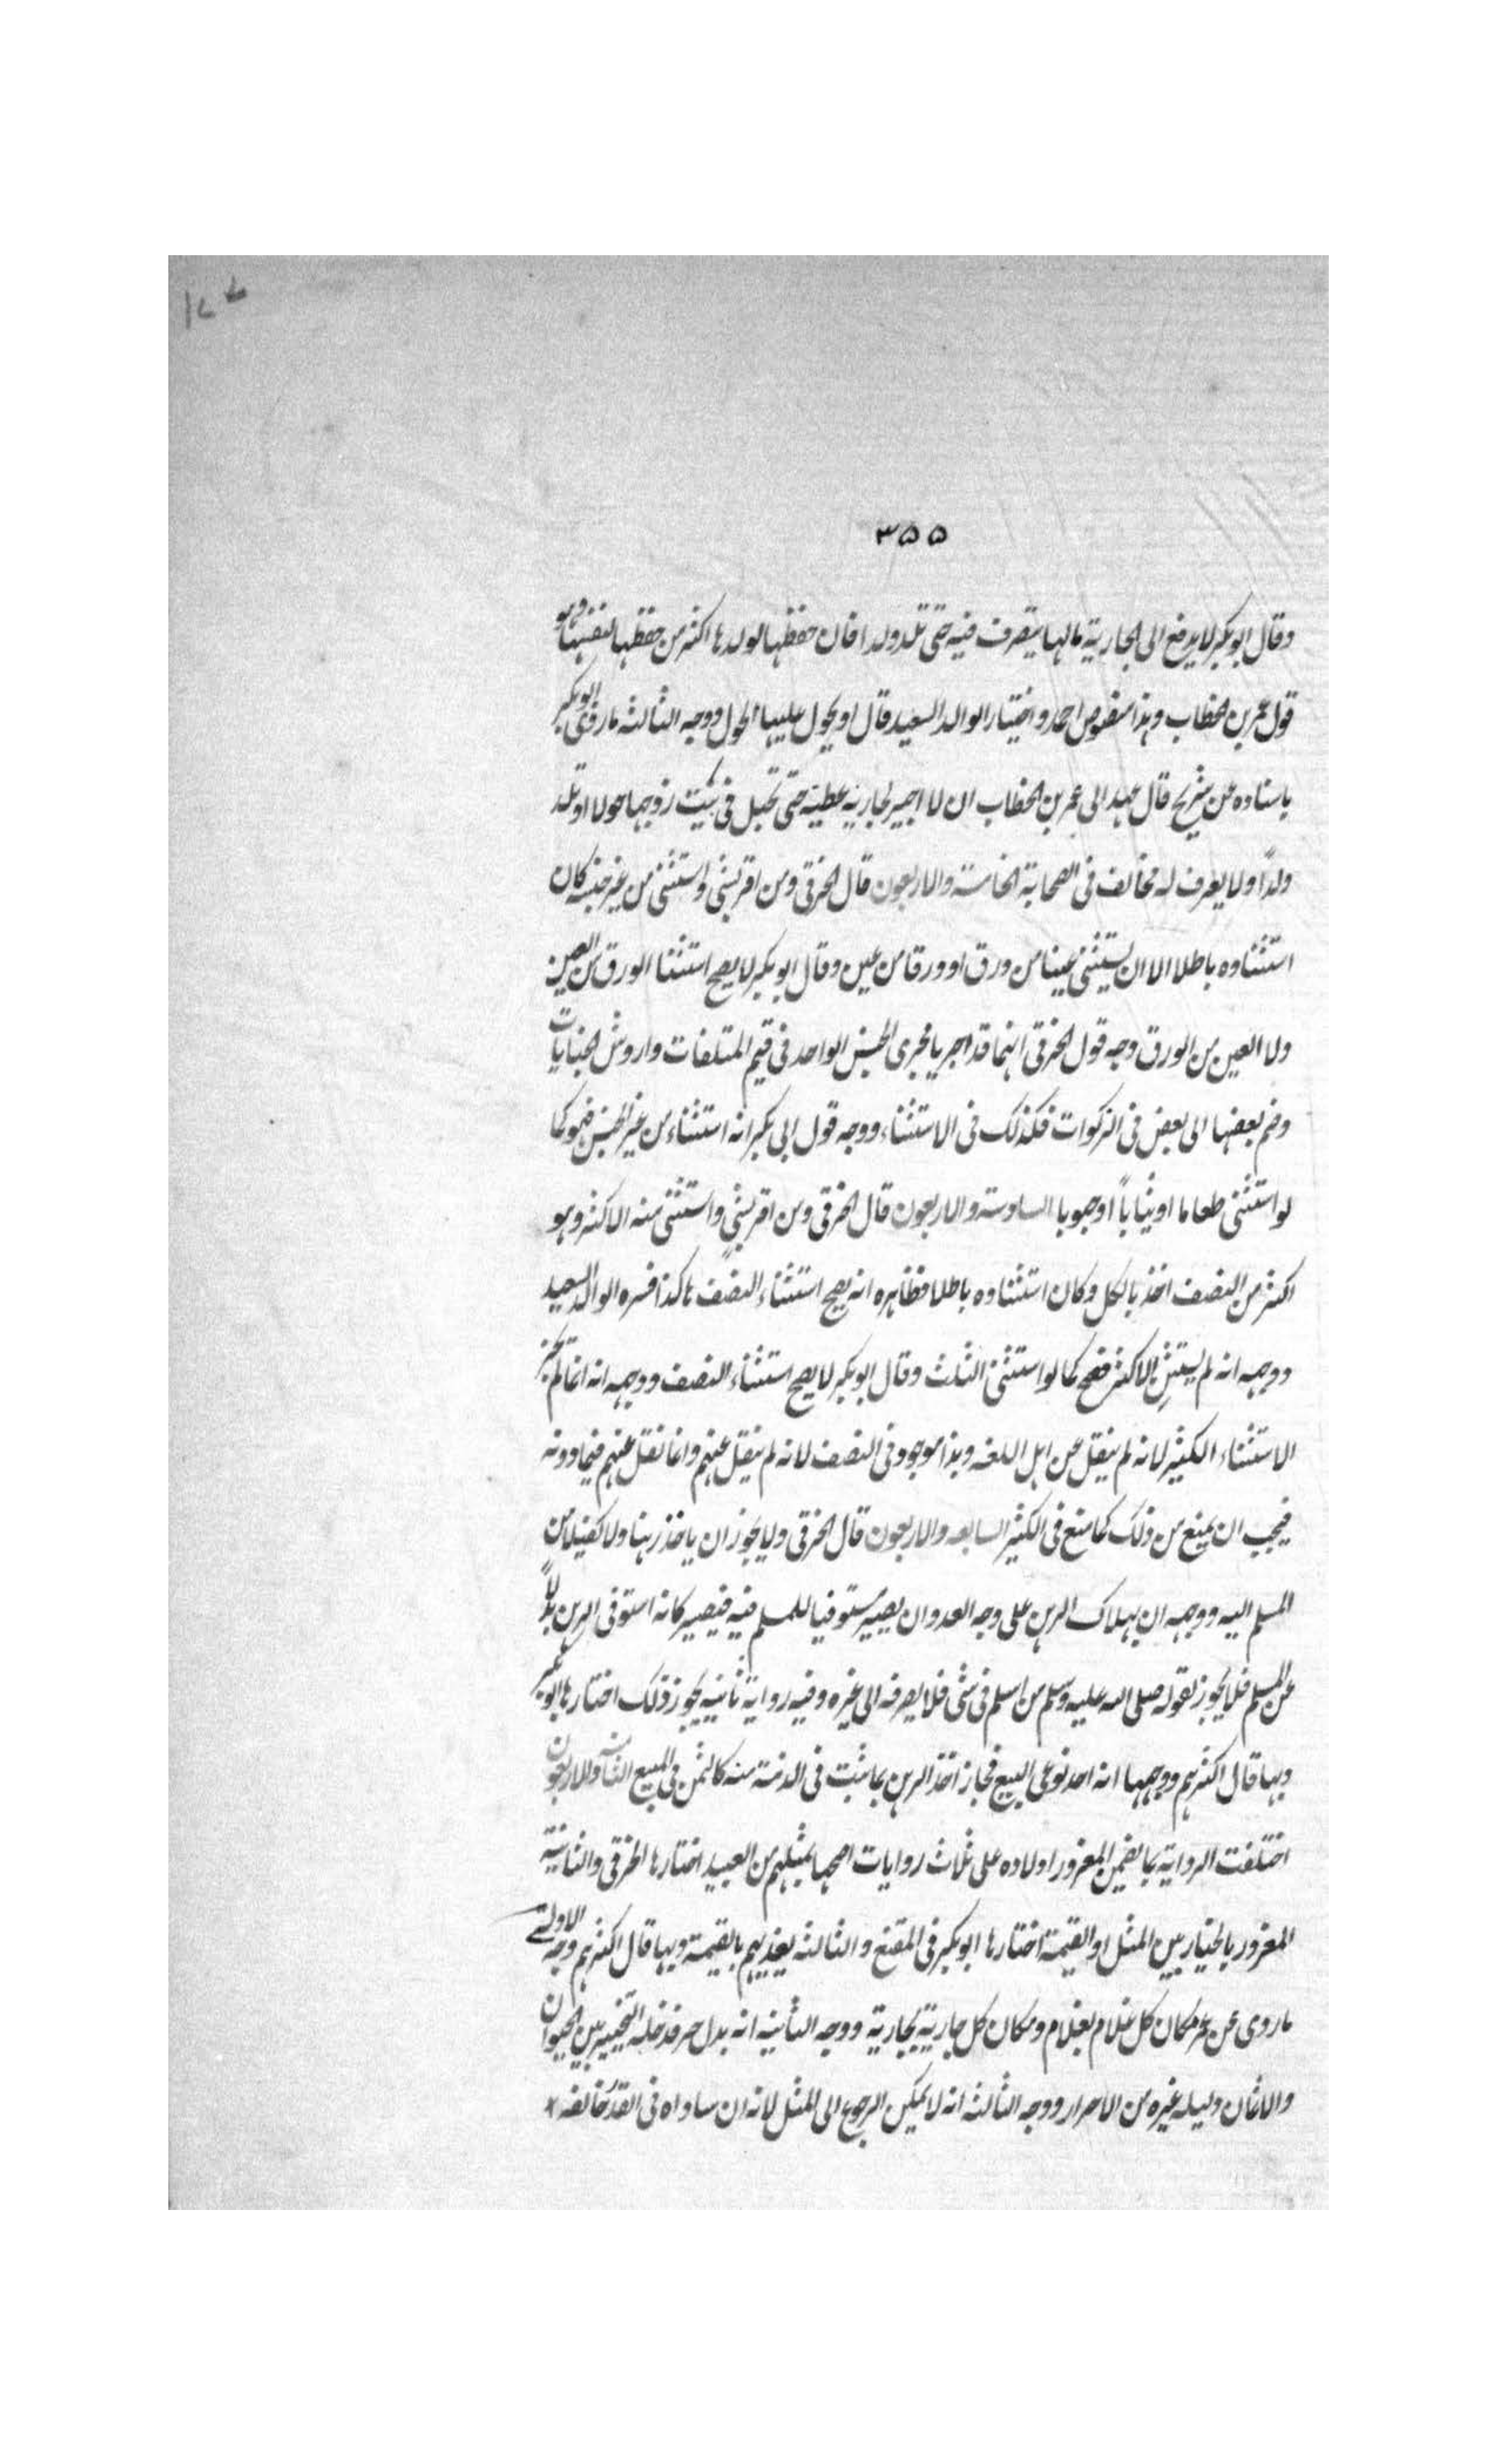 ١٧٧
٣٥٥
وقال ابو بكر لا يدفع الى الجارية مالها يتصرف فيه حتى تلد ولدا فان حفظها لولدها اكثر من حفظها لنفسها وهو
قول عمر بن الخطاب وهذا منصوص احمد واختيار الوالد السعيد قال او يحول عليها الحول ووجه الثالثه ما روى ابو بكر
باسناده عن شريح قال عهد الى عمر بن الخطاب ان لا اجيز لجاريه عطية حتى تحبل فى بيت زوجها حولا او تلد
ولداً ولا يعرف له مخالف فى الصحابة الخامسة والاربعون قال الخرقى ومن اقر بشئ واستثنى من غير جنسه كان
استثناوه باطلا الا ان يستثنى عينا من ورق او ورقا من عين وقال ابو بكر لا يصح استثنا الورق من العين
ولا العين من الورق وجه قول الخرقى انهما قد اجريا مجرى الجنس الواحد فى قيم المتلفات واروش الجنايات
وضم بعضها الى بعض فى الزكوات فكذلك فى الاستثناء ووجه قول ابى بكر انه استثناء من غير الجنس فهو كما
لو استثنى طعاما او ثياباً او حبوبا السادسة والاربعون قال الخرقى ومن اقر بشئ واستثنى منه الاكثر وهو
اكثر من النصف اخذ بالكل وكان استثناوه باطلا فظاهره انه يصح استثناء النصف هاكذا فسره الوالد السعيد
ووجهه انه لم يستثنِ الاكثر فصح كما لو استثنى الثلث وقال ابو بكر لا يصح استثناء النصف ووجهه انه انما لم يجز
الاستثناء الكثير لانه لم ينقل عن اهل اللغه وهذا موجود فى النصف لانه لم ينقل عنهم وانما نقل عنهم فيما دونه
فيجب ان يمنع من ذلك كما منع فى الكثير السابعه والاربعون قال الخرقى ولا يجوز ان ياخذ رهنا ولا كفيلا من
المسلم اليه ووجهه ان بهلاك الرهن على وجه العدوان يصير مستوفيا للمسلم فيه فيصير كانه استوفى الرهن بدلاً
عن المسلم فلا يجوز لقوله صلى الله عليه وسلم من اسلم فى شئ فلا يصرفه الى غيره وفيه رواية ثانيه يجوز ذلك اختارها ابو بكر
وبها قال اكثرهم ووجهها انه احد نوعى البيع فجاز اخذ الرهن بما يثبت فى الذمة منه كالثمن فى المبيع الثامنة والاربعون
اختلفت الرواية بما يضمن المغرور اولاده على ثلاث روايات اصحها بمثلهم من العبيد اختارها الخرقى والثانية
المغرور بالخيار بين المثل او القيمة اختارها ابو بكر فى المقنع والثالثه يفديهم بالقيمة وبها قال اكثرهم وجه الاولى
ما روى عن عمر مكان كل غلام بغلام ومكان كل جارية بجارية ووجه الثانيه انه بدل حر فدخله التخيير بين الحيوان
والاثمان دليله غيره من الاحرار ووجه الثالثه انه لا يمكن الرجوع الى المثل لانه ان ساواه فى القدر خالفه